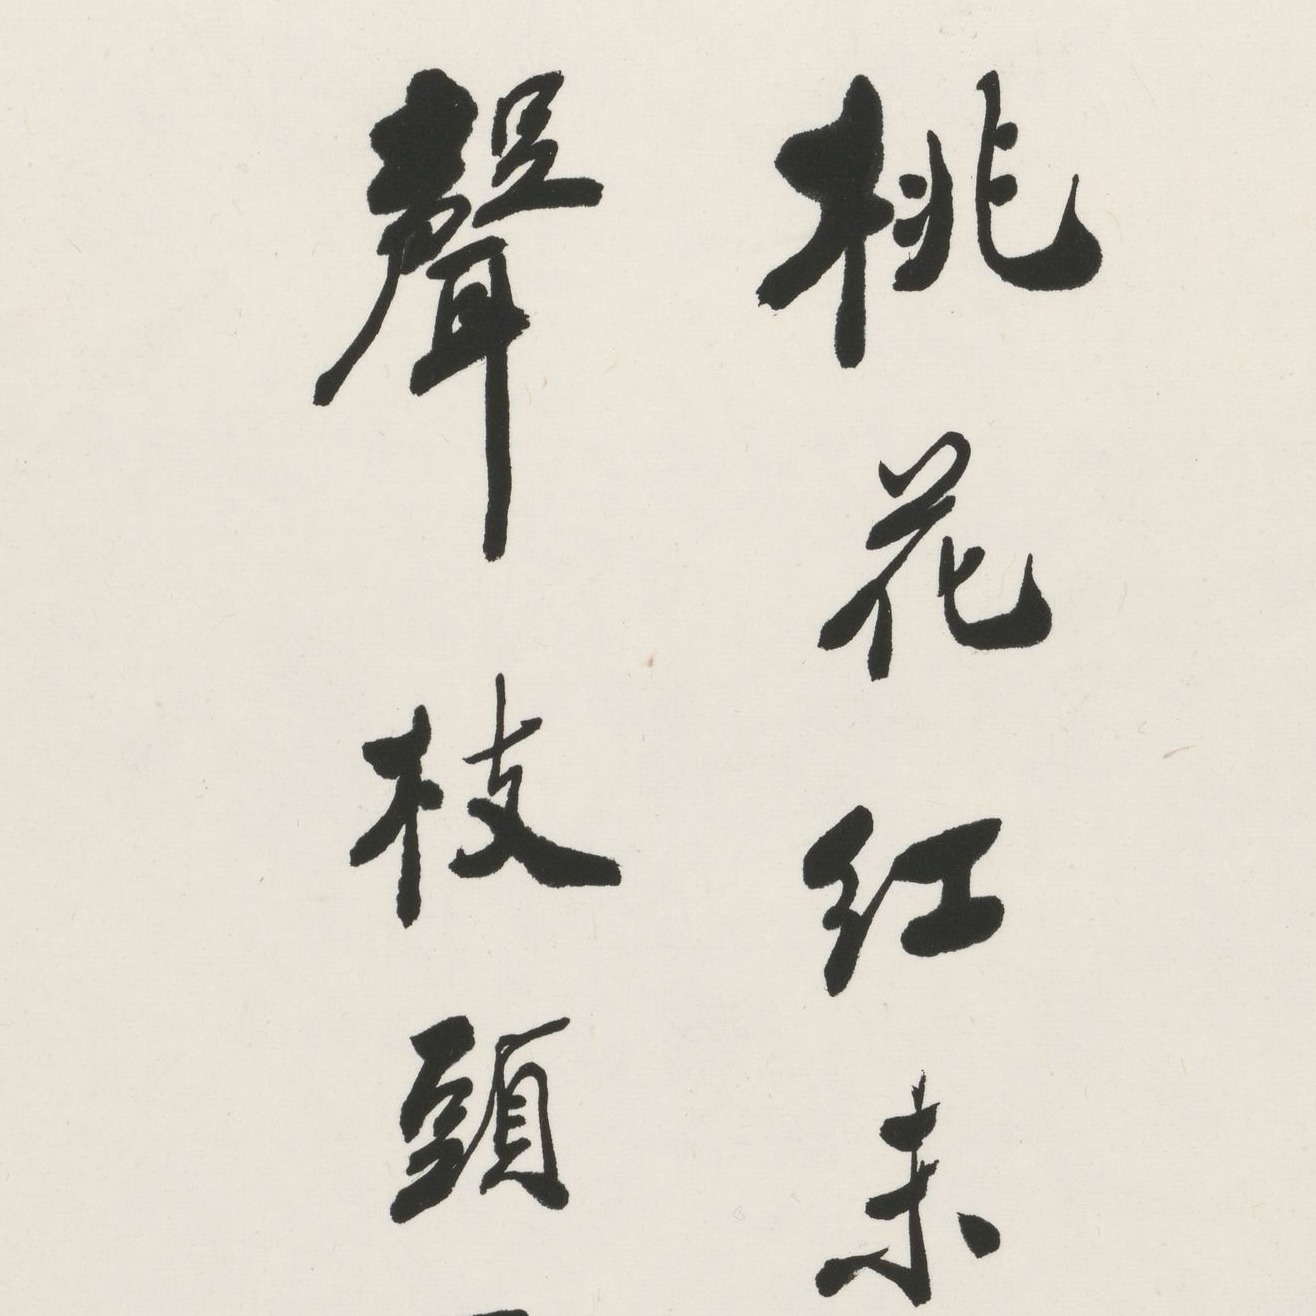 桃花紅未
聲枝頭